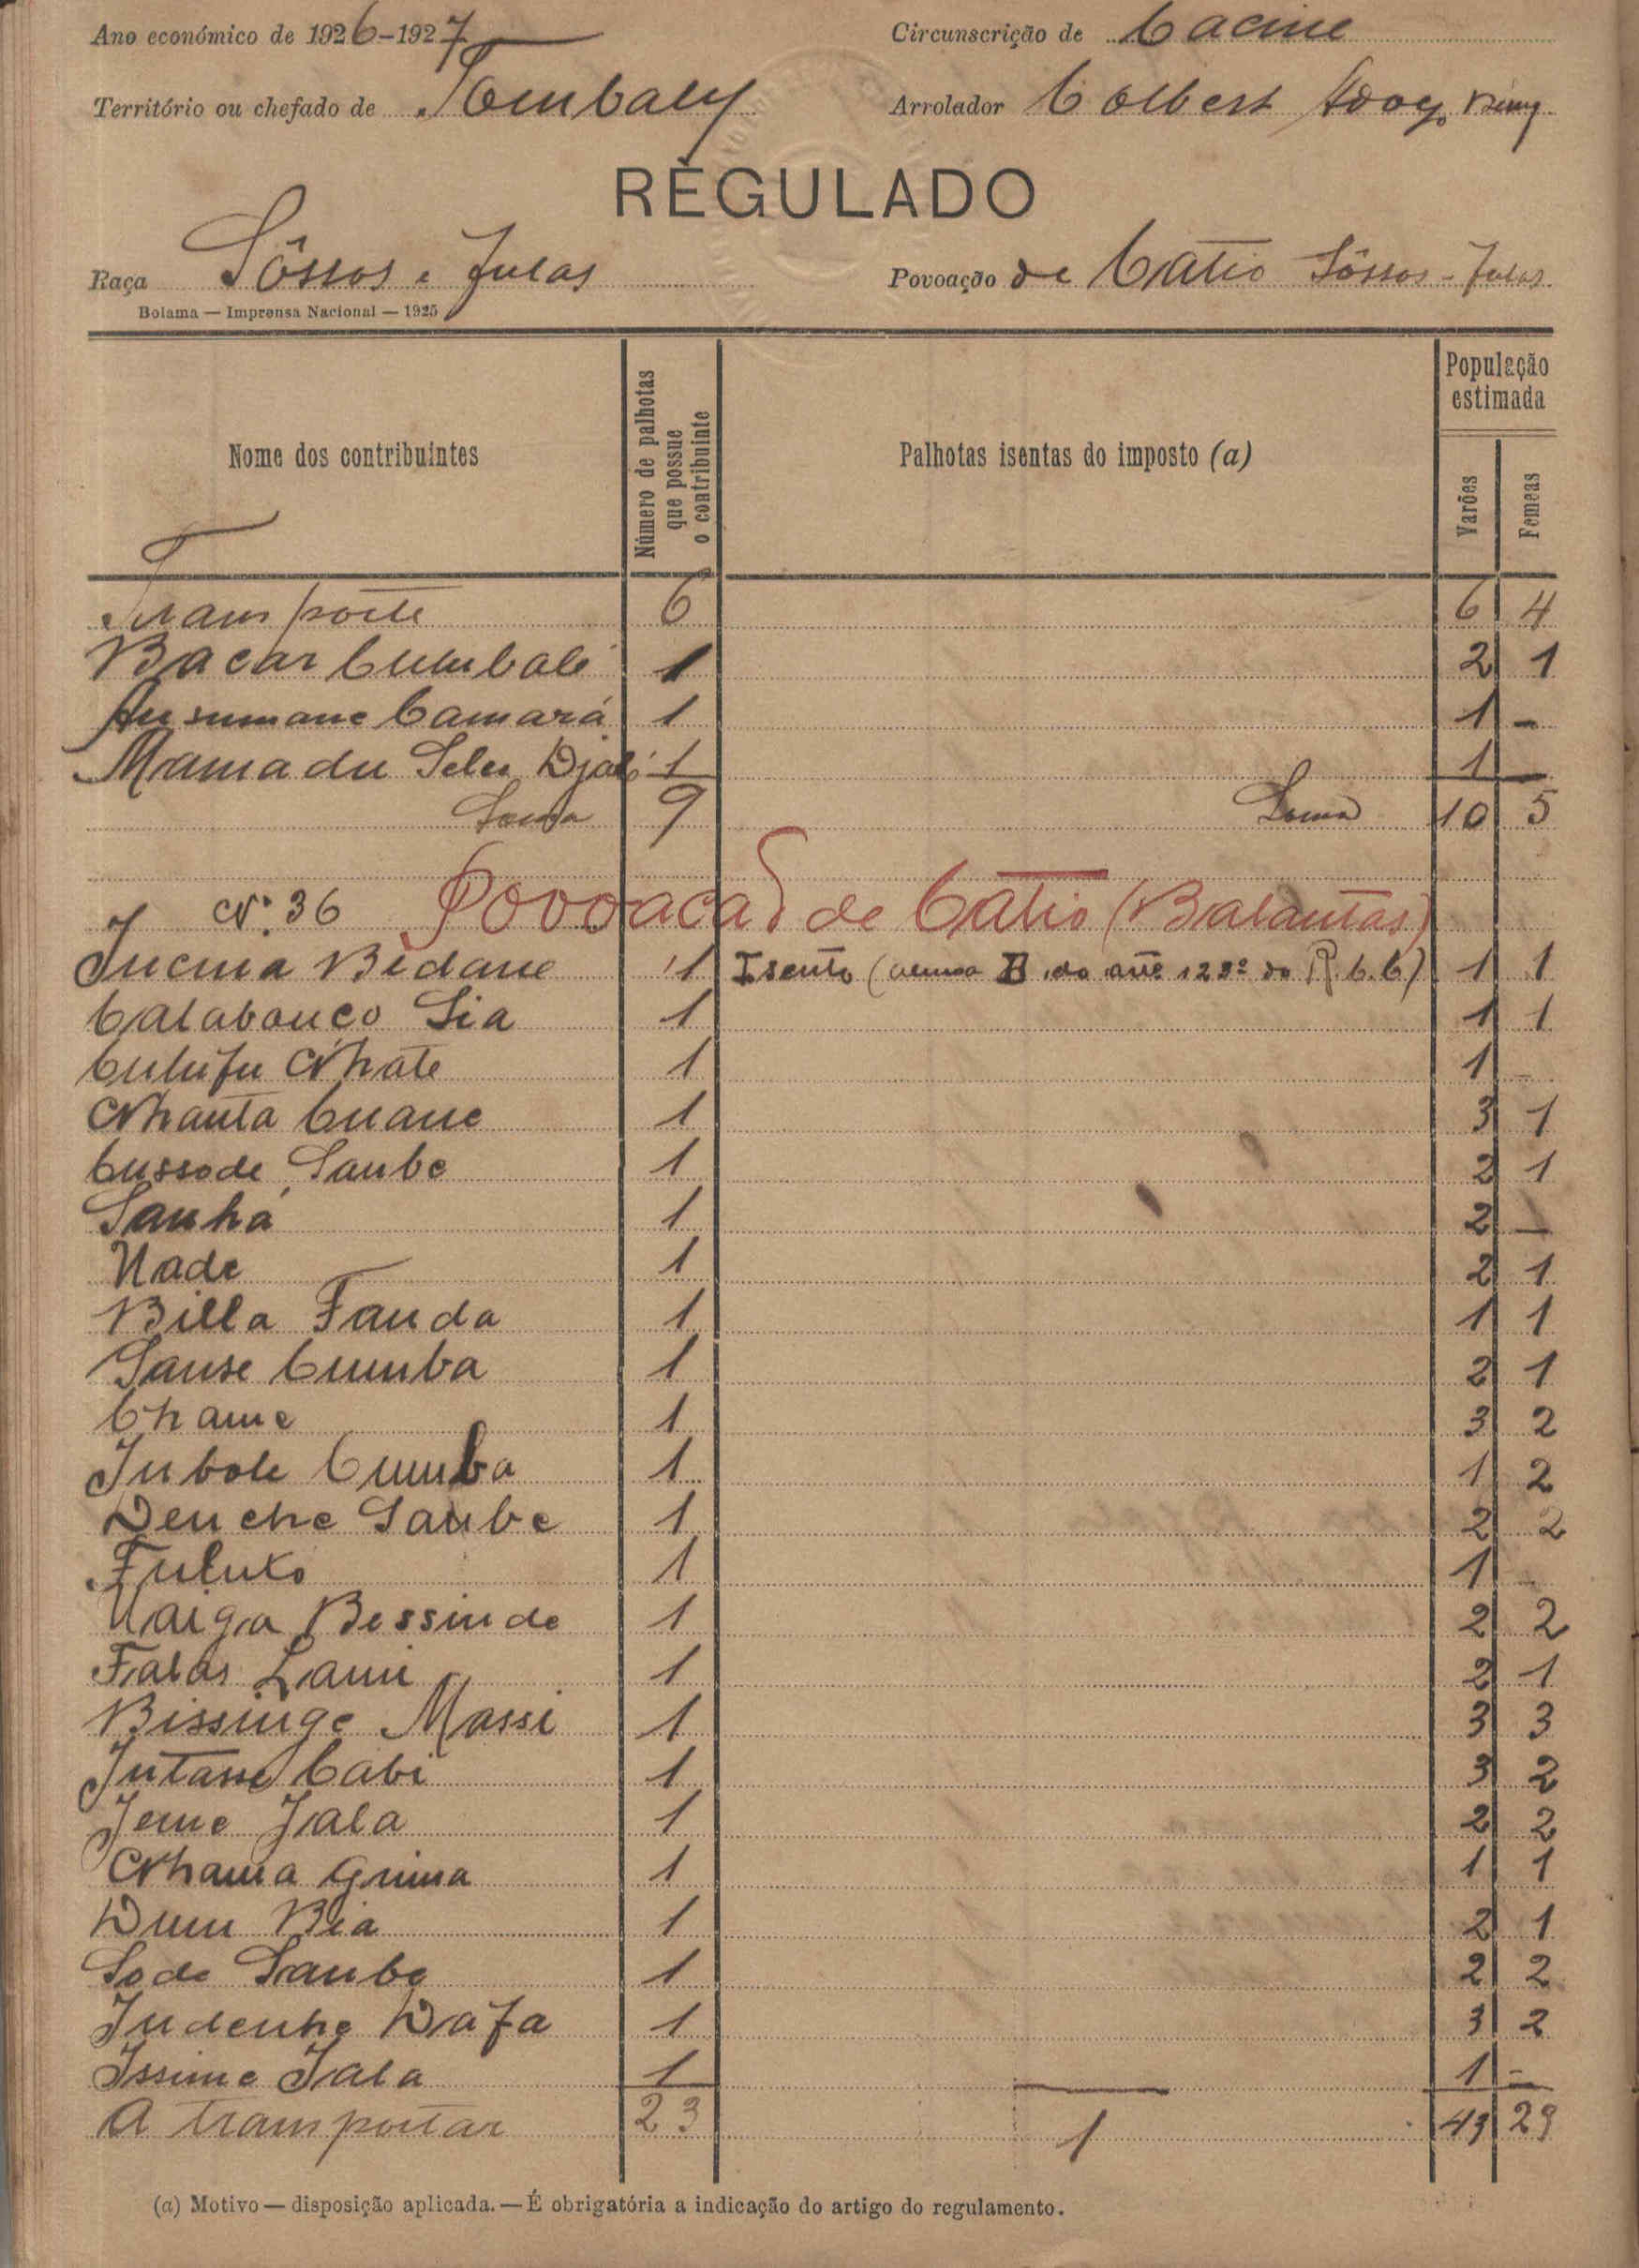 Ano económico de 1926-1927 Circunscrição de Cacine
Território ou chefado de Tombaly Arrolador Colbert
REGULADO
Raça Sôssos e Fulas Povoação de Catió Sôssos - Fulas
Bolama — Imprensa Nacional — 1925
Nome dos contribuintes Número de palhotas que possue o contribuinte Palhotas isentas do imposto (a) População estimada Varões Femeas
Transporte 6 6 4
Bacar Cumbalé 1 2 1
Ansumane Camará 1 1 -
Mamadu Seleu Djaló 1 1 —
Soma 9 Soma 10 5
Nº 36 Povoação de Catió (Balantas)
Incma Bidane 1 Isento (alinea B do artº 128º do R.C.C.) 1 1
Calabouço Sia 1 1 1
Culufu Nhate 1 1 -
Nhanta Cuane 1 3 1
Cussode Sambe 1 2 1
Sanhá 1 2 —
Nade 1 2 1
Billa Fanda 1 1 1
Sanse Cumba 1 2 1
Chame 1 3 2
Inbole Cumba 1 1 2
Denche Sambe 1 2 2
Fuluto 1 1 -
Naiga Bessinde 1 2 2
Falas Lami 1 2 1
Bissinge Massi 1 3 3
Intame Cabi 1 3 2
Jeme Jala 1 2 2
Nhama Grima 1 1 1
Dum Bia 1 2 1
Sode Sambe 1 2 2
Indenhe Dafa 1 3 2
Issime Jala 1 1 -
A transportar 23 1 43 29
(a) Motivo — disposição aplicada. — É obrigatória a indicação do artigo do regulamento.